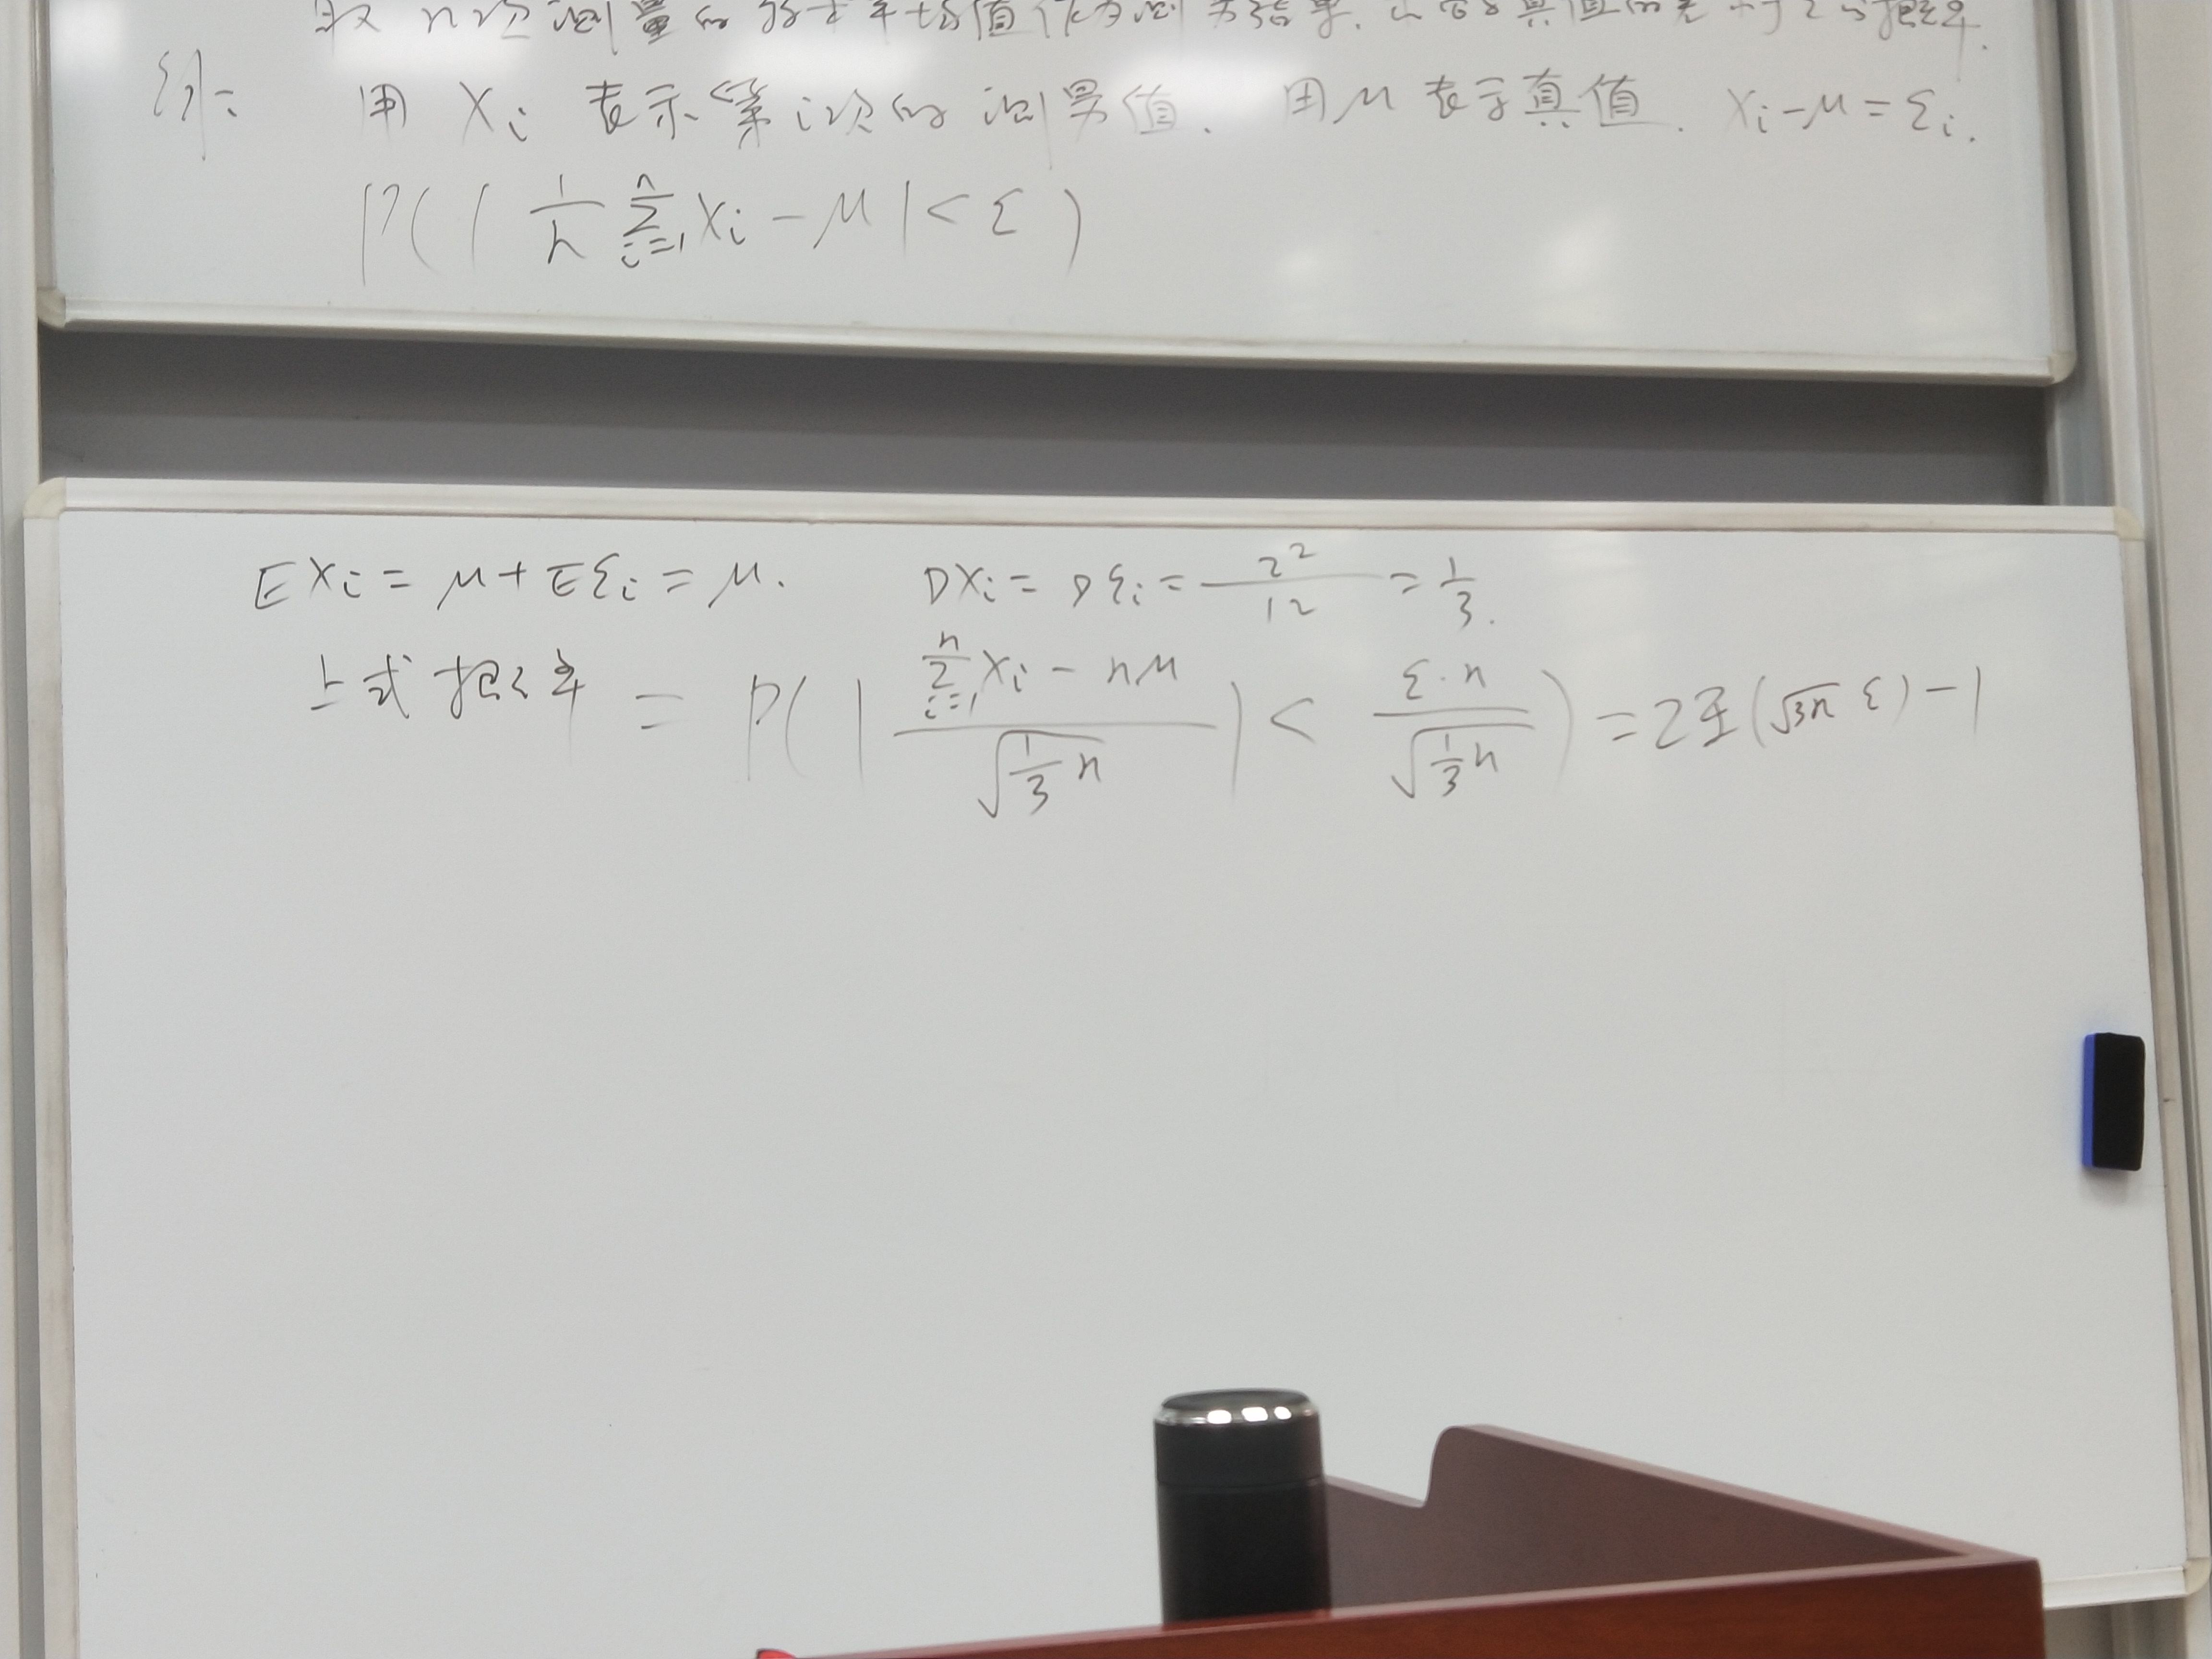 取n次测量的算术平均值作为测量结果.求它与真值的差小于ε的概率.
例: 用 Xi 表示第i次的测量值. 用μ表示真值. Xi-μ=εi.
P(|1/n ∑_{i=1}^{n} Xi-μ|<ε)
EXi=μ+Eεi=μ. DXi=Dεi=2²/12=1/3.
上式概率=P(|(∑_{i=1}^{n} Xi-nμ)/√(1/3 n)|<(ε·n)/√(1/3 n))=2Φ(√3n ε)-1